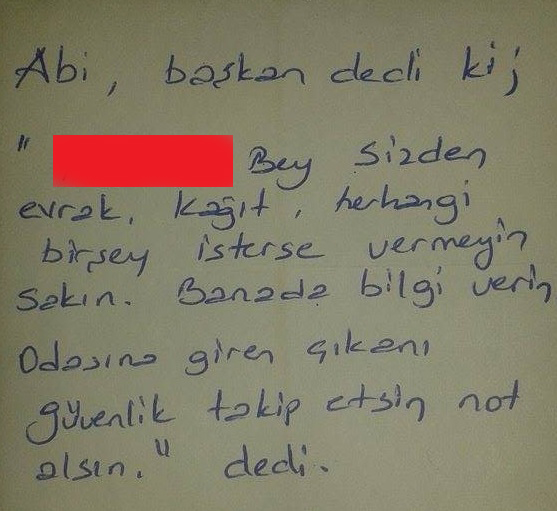 Abi, başkan dedi ki;
" Bey sizden
evrak, kağıt, herhangi
birşey isterse vermeyin
sakın. Banada bilgi verin
Odasına giren çıkanı
güvenlik takip etsin not
alsın." dedi.